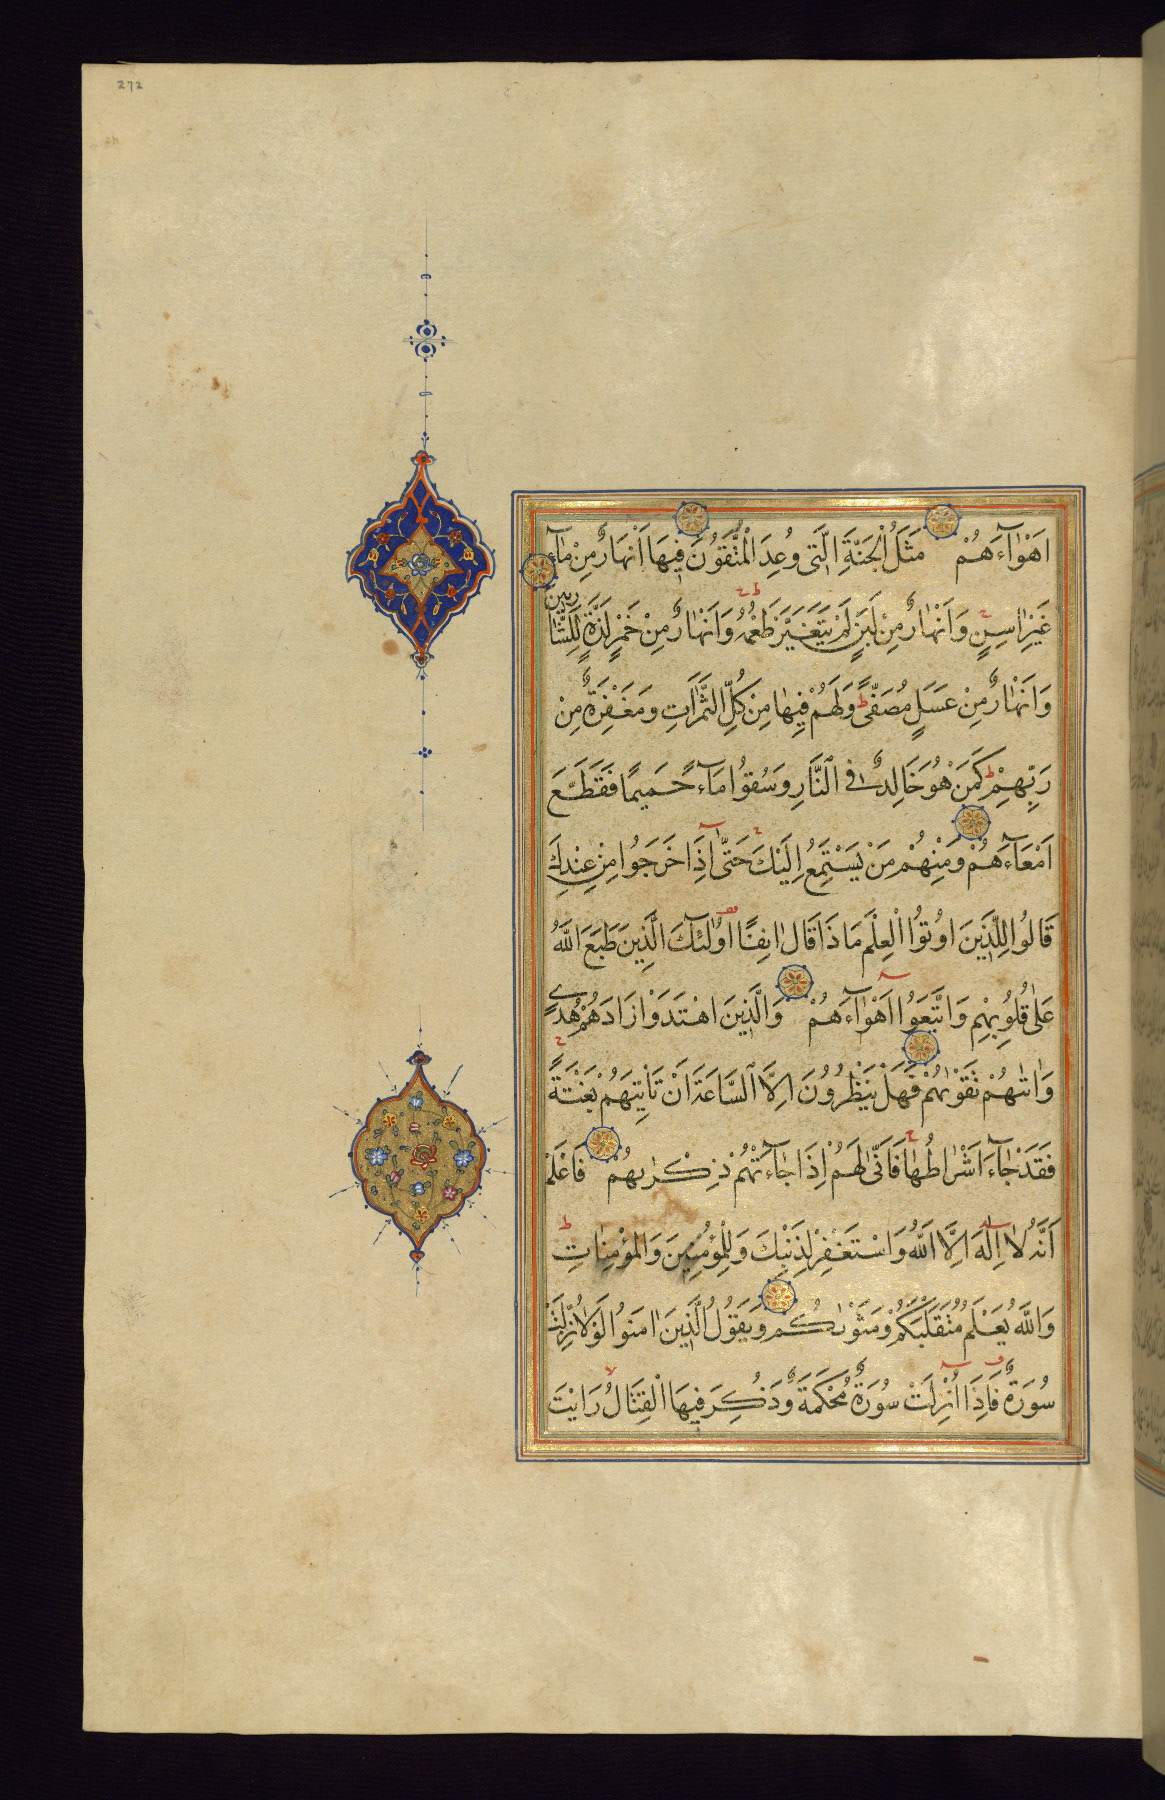 272
اَهْوٰآءَهُمْ مَثَلُ الْجَنَّةِ الَّتٖى وُعِدَ الْمُتَّقُونَ فٖيهَا اَنْهَارٌ مِنْ مٰآءٍ
غَيْرِ اٰسِنٍ وَاَنْهٰارٌ مِنْ لَبَنٍ لَمْ يَتَغَيَّرْ طَعْمُهُ وَاَنْهٰارٌ مِنْ خَمْرٍ لَذَّةٍ لِلشَّارِبٖينَ
وَاَنْهٰارٌ مِنْ عَسَلٍ مُصَفّىً وَلَهُمْ فٖيهٰا مِنْ كُلِّ الثَّمَرٰاتِ وَمَغْفِرَةٌ مِنْ
رَبِّهِمْ كَمَنْ هُوَ خَالِدٌ فِى النَّارِ وَسُقُوا مَآءً حَمٖيمًا فَقَطَّعَ
اَمْعَآءَهُمْ وَمِنْهُمْ مَنْ يَسْتَمِعُ اِلَيْكَ حَتّٰى اِذَا خَرَجُوا مِنْ عِنْدِكَ
قَالُوا لِلَّذٖينَ اوُتُوا الْعِلْمَ مَاذَا قَالَ اٰنِفًا اوُلٰئِكَ الَّذٖينَ طَبَعَ اللّٰهُ
عَلٰى قُلُوبِهِمْ وَاتَّبَعُوا اَهْوٰآءَهُمْ وَالَّذٖينَ اهْتَدَوْا زَادَهُمْ هُدًى
وَاٰتٰهُمْ تَقْوٰهُمْ فَهَلْ يَنْظُرُونَ اِلَّا السَّاعَةَ اَنْ تَأْتِيَهُمْ بَغْتَةً
فَقَدْ جٰآءَ اَشْرٰاطُهٰا فَاَنّٰى لَهُمْ اِذَا جٰآءَتْهُمْ ذِكْرٰيهُمْ فَاعْلَمْ
اَنَّهُ لٰا اِلٰهَ اِلَّا اللّٰهُ وَاسْتَغْفِرْ لِذَنْبِكَ وَلِلْمُؤْمِنٖينَ وَالْمُؤْمِنٰاتِ
وَاللّٰهُ يَعْلَمُ مُتَقَلَّبَكُمْ وَمَثْوٰيكُمْ وَيَقُولُ الَّذٖينَ اٰمَنُوا لَوْلٰا نُزِّلَتْ
سُورَةٌ فَاِذَا اُنْزِلَتْ سُورَةٌ مُحْكَمَةٌ وَذُكِرَ فٖيهَا الْقِتَالُ رَاَيْتَ